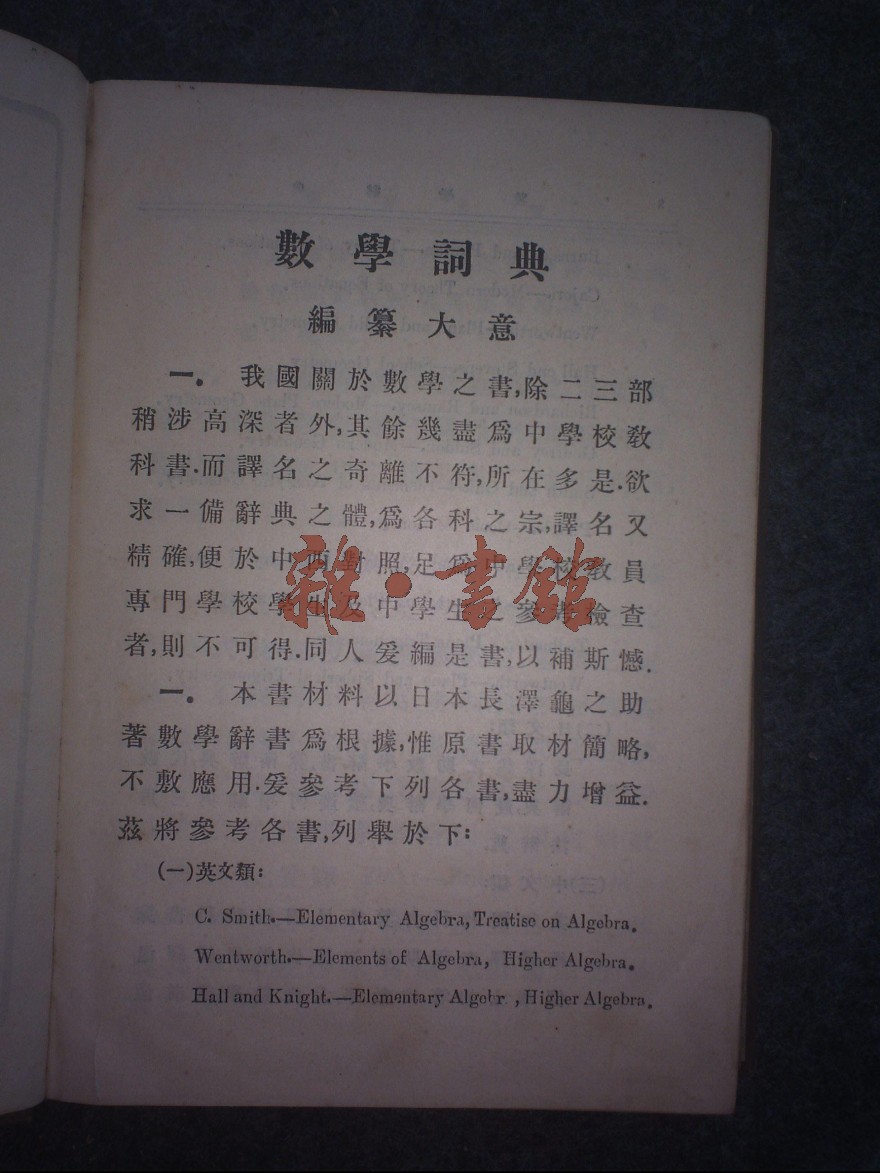 數學詞典
編纂大意
一. 我國關於數學之書,除二三部
稍涉高深者外,其餘幾盡爲中學校敎
科書.而譯名之奇離不符,所在多是.欲
求一備辭典之體,爲各科之宗,譯名又
精確,便於中西對照,足爲中學校敎員
專門學校學生及中學生之參考檢查
者,則不可得.同人爰編是書,以補斯憾.
一. 本書材料以日本長澤龜之助
著數學辭書爲根據,惟原書取材簡略,
不敷應用.爰參考下列各書,盡力增益.
茲將參考各書,列舉於下:
(一)英文類:
C. Smith.—Elementary Algebra, Treatise on Algebra.
Wentworth.—Elements of Algebra, Higher Algebra.
Hall and Knight.—Elementary Algebr , Higher Algebra.
雜·書館